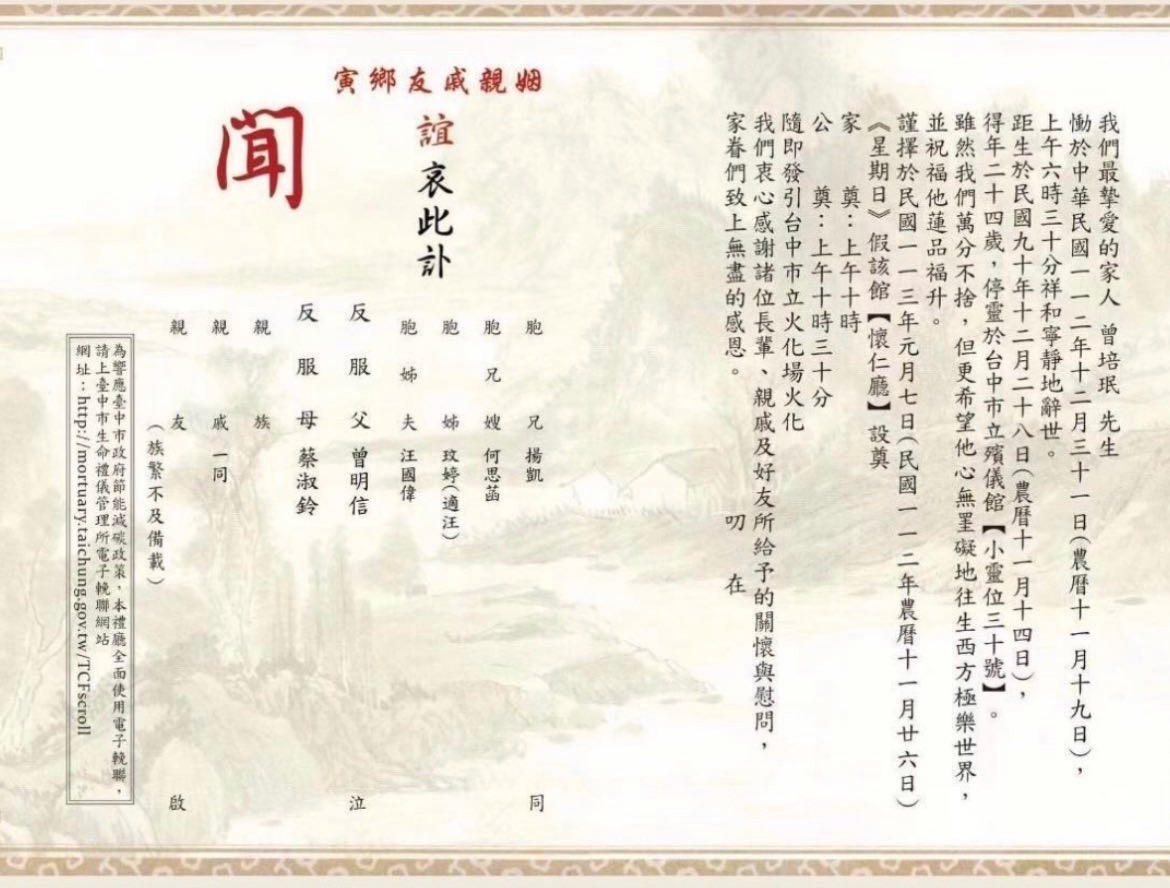 我們最摯愛的家人 曾培珉 先生
慟於中華民國一一二年十二月三十一日(農曆十一月十九日)，
上午六時三十分祥和寧靜地辭世。
距生於民國九十年十二月二十八日(農曆十一月十四日)，
得年二十四歲，停靈於台中市立殯儀館【小靈位三十號】。
雖然我們萬分不捨，但更希望他心無罣礙地往生西方極樂世界，
並祝福他蓮品福升。
謹擇於民國一一三年元月七日(民國一一二年農曆十一月廿六日)
《星期日》假該館【懷仁廳】設奠
家 奠：上午十時
公 奠：上午十時三十分
隨即發引台中市立火化場火化
我們衷心感謝諸位長輩、親戚及好友所給予的關懷與慰問，
家眷們致上無盡的感恩。 叨 在
姻親戚友鄉寅
誼哀此訃
聞
胞兄 揚凱 同
胞兄嫂 何思菡
胞姊 玟婷(適汪)
胞姊夫 汪國偉
反服父 曾明信 泣
反服母 蔡淑鈴
親族
親戚 一同
親友 啟
(族繁不及備載)
為響應臺中市政府節能減碳政策，本禮廳全面使用電子輓聯，
請上臺中市生命禮儀管理所電子輓聯網站
網址：http://mortuary.taichung.gov.tw/TCFscroll